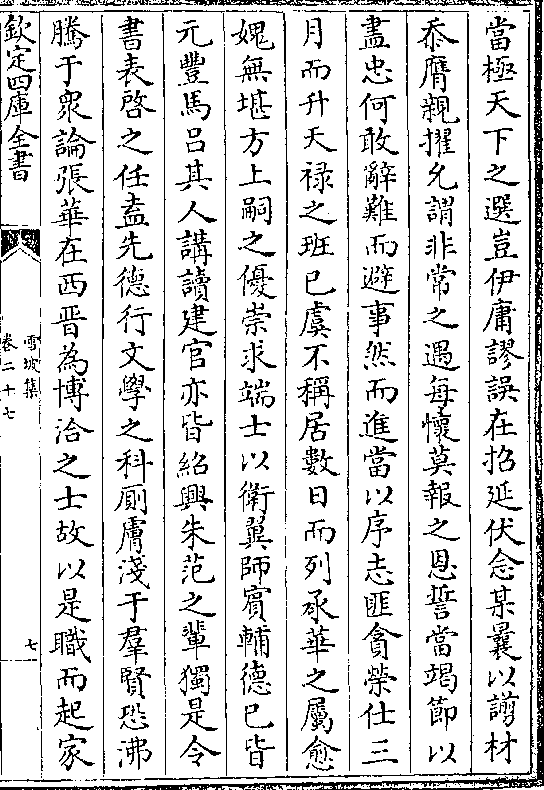 當極天下之選豈伊庸謬誤在招延伏念某曩以謭材
忝膺親擢允謂非常之遇每懷莫報之恩誓當竭節以
盡忠何敢辭難而避事然而進當以序志匪貪榮仕三
月而升天禄之班已虞不稱居數日而列承華之屬愈
媿無堪方上嗣之優崇求端士以衛翼師賓輔德已皆
元豐馬吕其人講讀建官亦皆紹興朱范之輩獨是令
書表啓之任葢先德行文學之科厠膚淺于羣賢恐沸
騰于衆論張華在西晋為博洽之士故以是職而起家
欽定四庫全書
雪坡集
卷二十七
七